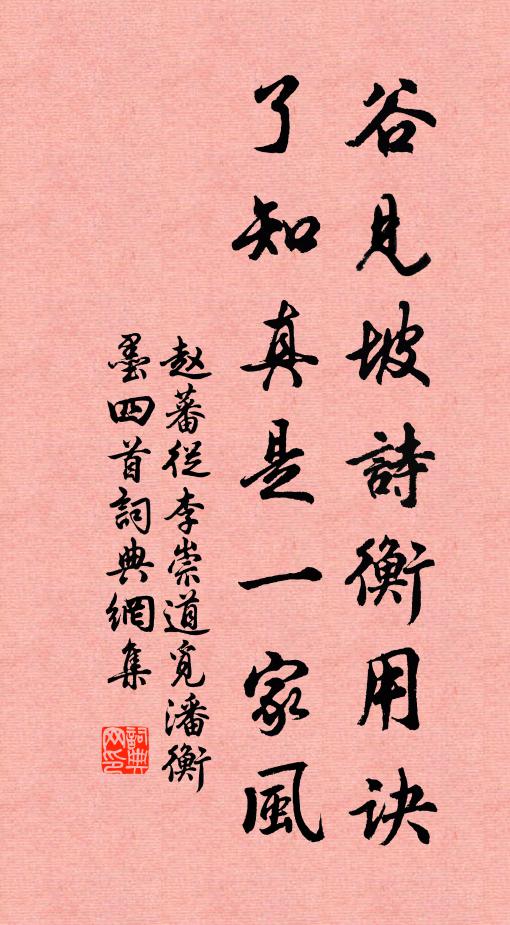 谷見坡詩衡用诀
了知真是一家風
赵蕃從李崇道覓潘衡
墨四首詞典網集
詞典网印